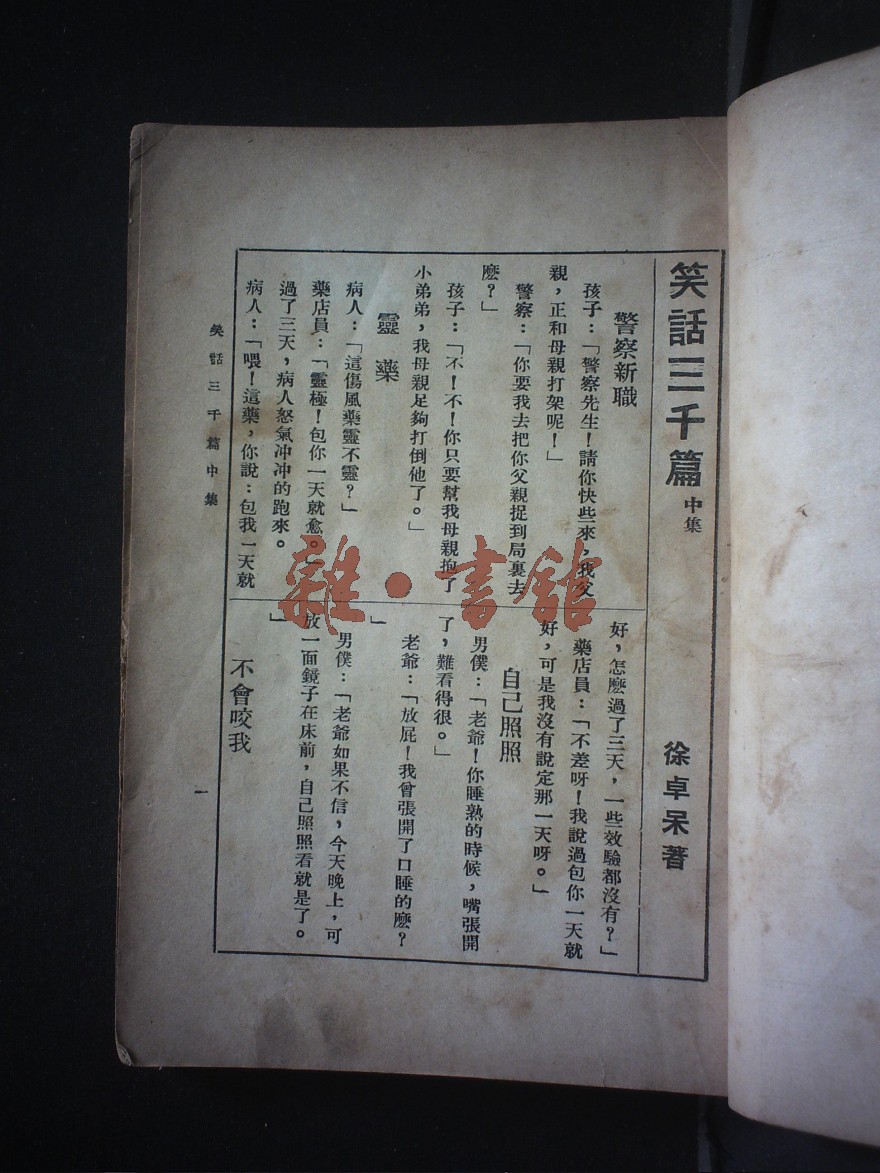 笑話三千篇 中集
徐卓呆著
警察新職
孩子：「警察先生！請你快些來，我父
親，正和母親打架呢！」
警察：「你要我去把你父親捉到局裏去
麽？」
孩子：「不！不！你只要幫我母親抱了
小弟弟，我母親足夠打倒他了。」
靈藥
病人：「這傷風藥靈不靈？」
藥店員：「靈極！包你一天就愈。」
過了三天，病人怒氣冲冲的跑來。
病人：「喂！這藥，你說：包我一天就
好，怎麽過了三天，一些效驗都沒有？」
藥店員：「不差呀！我說過包你一天就
好，可是我沒有說定那一天呀。」
自己照照
男僕：「老爺！你睡熟的時候，嘴張開
了，難看得很。」
老爺：「放屁！我曾張開了口睡的麽？
」
男僕：「老爺如果不信，今天晚上，可
放一面鏡子在床前，自己照照看就是了。
」
不會咬我
笑話三千篇中集
一
雜·書館